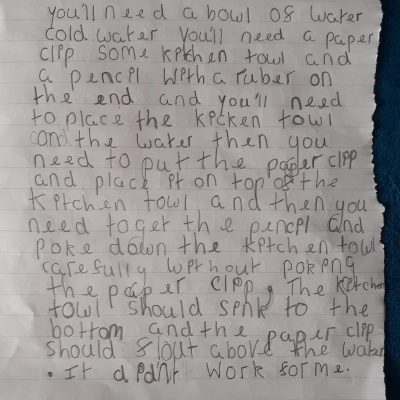 you'll need a bowl of water
cold water you'll need a paper
clip some kitchen towl and
a pencil with a ruber on
the end and you'll need
to place the kicken towl
on the water then you
need to put the paper clip
and place it on top of the
kitchen towl and then you
need to get the pencil and
poke down the kitchen towl
carefully without poking
the paper clip, The kitchen
towl should sink to the
bottom and the paper clip
should flout above the water
. It didn't work for me.